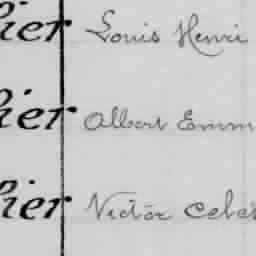 hier Louis Henri
hier Albert Emm
hier Victor Celes